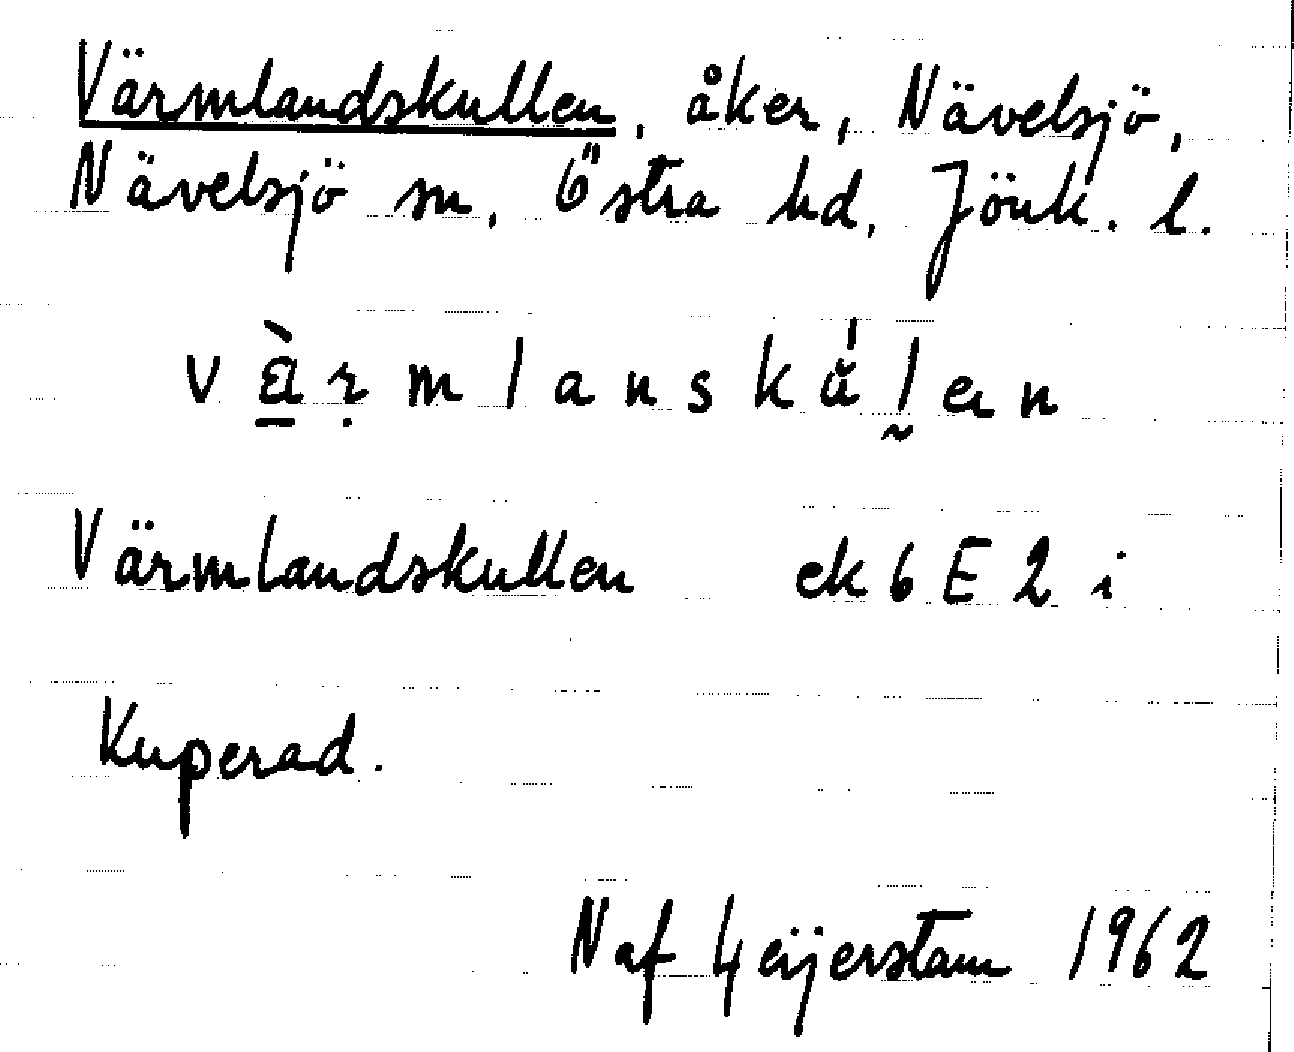 Värmlandskullen, åker, Nävelsjö,
Nävelsjö sn, Östra hd, Jönk. l.
Värmlandskullen ek 6 E 2 i
Kuperad.
Naf Geijerstam 1962